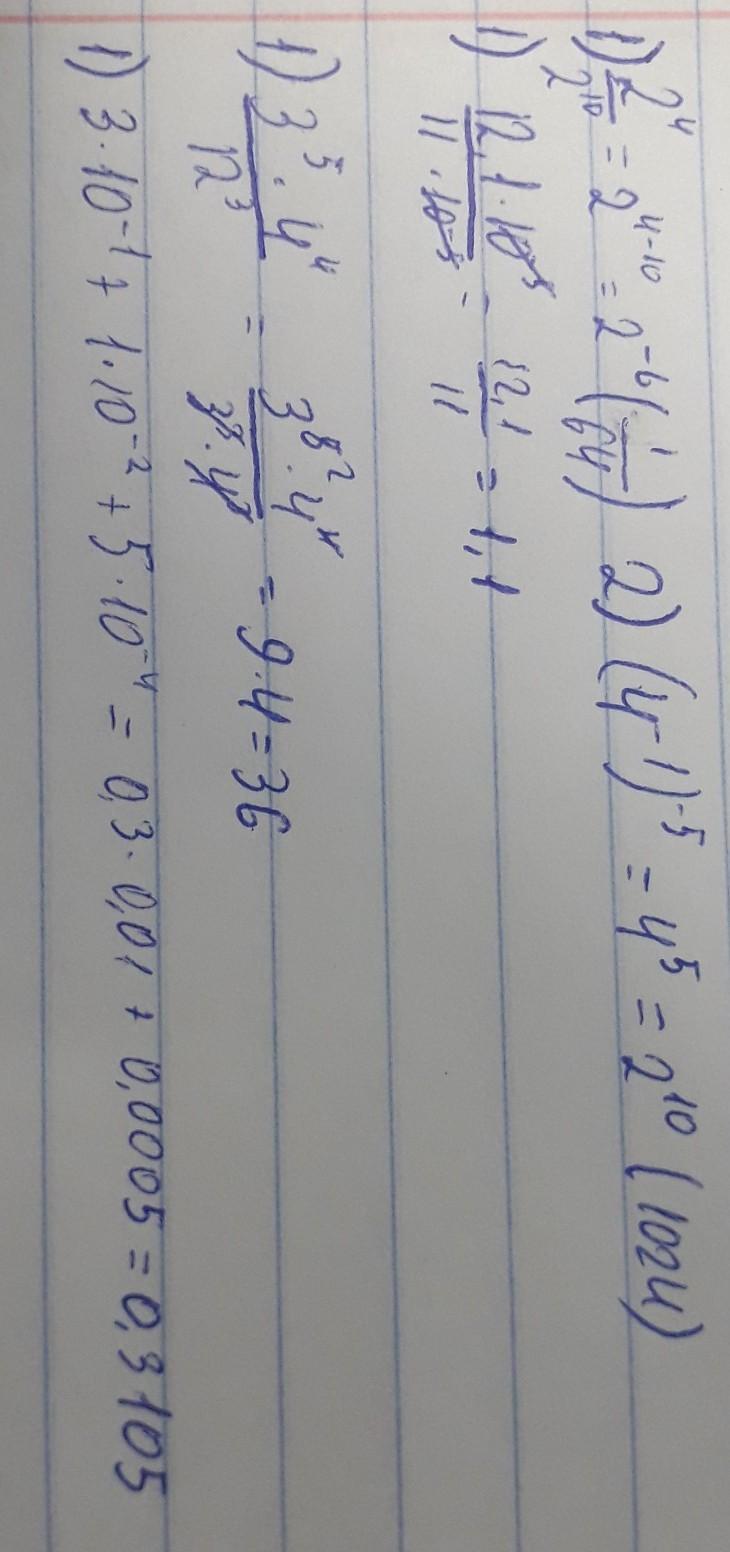 1) 2⁴/2¹⁰ = 2⁴⁻¹⁰ = 2⁻⁶ (1/64) 2) (4⁻¹)⁻⁵ = 4⁵ = 2¹⁰ (1024)
1) 12,1·10⁻⁵/11·10⁻⁵ = 12,1/11 = 1,1
1) 3⁵·4⁴/12³ = 3⁵ ²·4⁴/3³·4³ = 9·4=36
1) 3·10⁻¹ + 1·10⁻² + 5·10⁻⁴ = 0,3·0,01 + 0,0005 = 0,3105